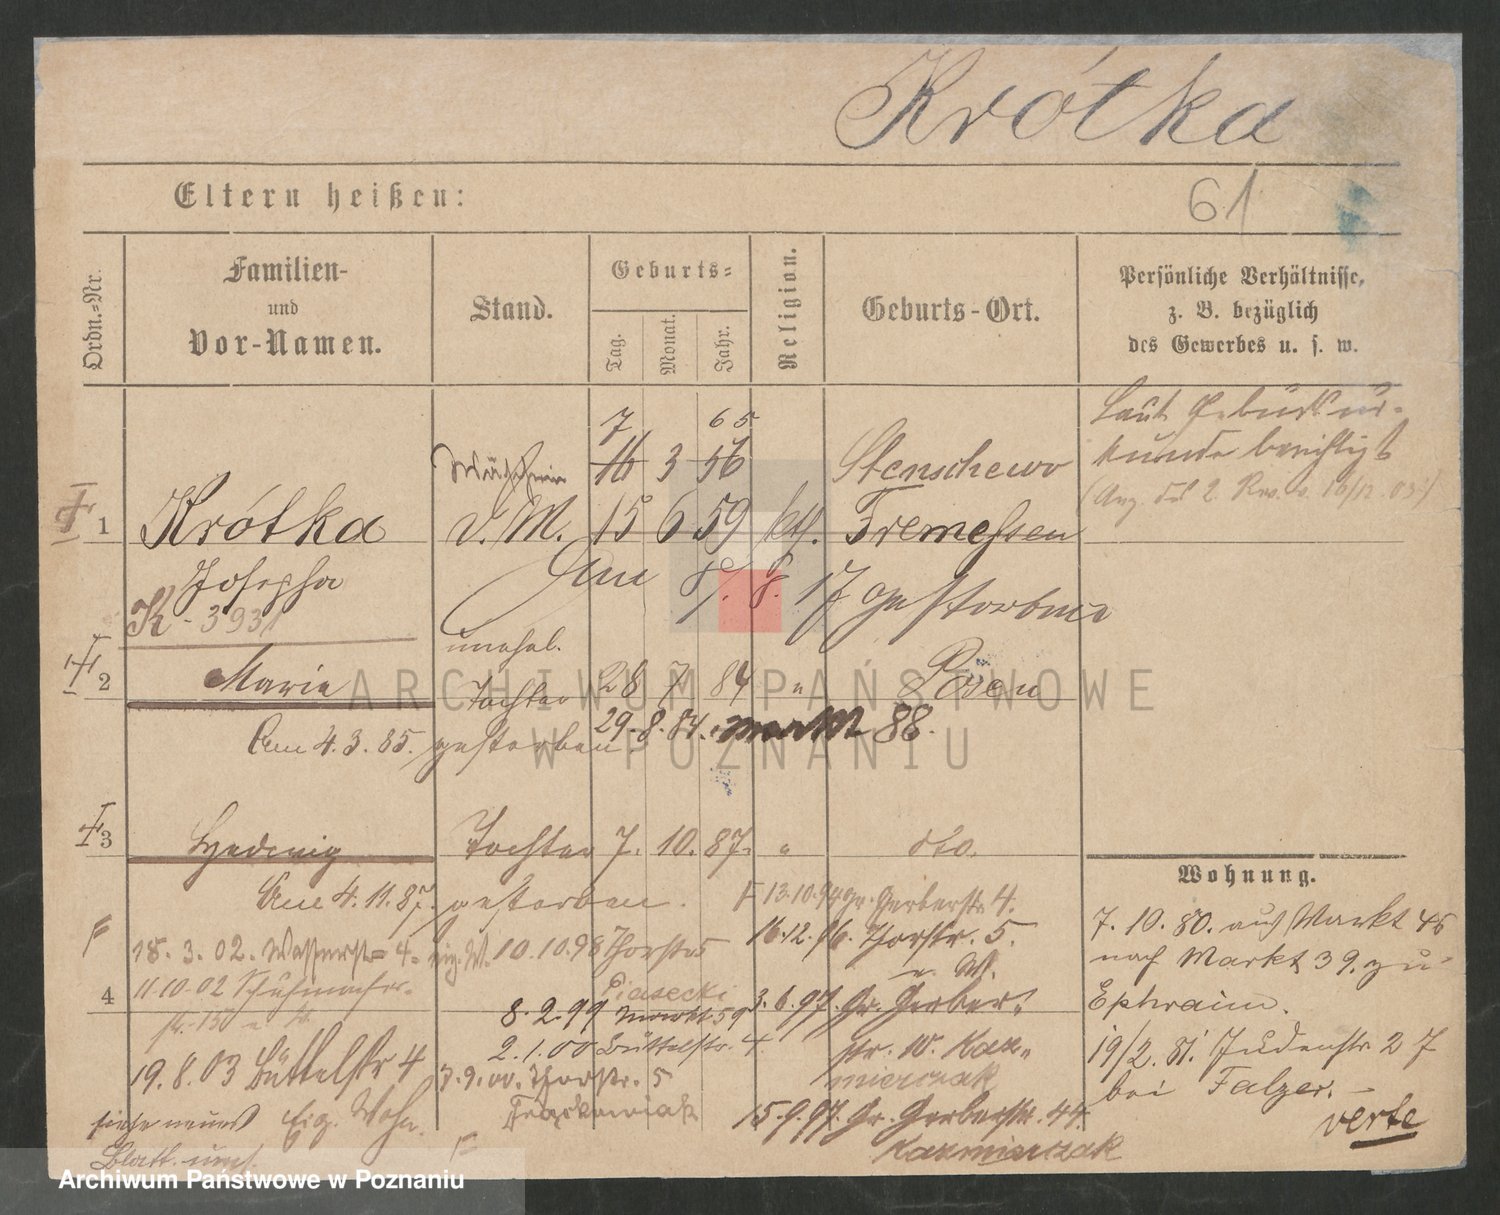 Krótka
Eltern heißen:
61
Ordn.-Nr.
Familien-
und
Vor-Namen.
Stand.
Geburts-
Tag.
Monat.
Jahr.
Religion.
Geburts-Ort.
Persönliche Verhältnisse,
z. B. bezüglich
des Gewerbes u. s. w.
Laut Geburtsur-
kunde berichtigt
7 65
16 3 56 Stenschewo
1 Krótka v. M. 15 6 59 kth. Tremessen
Josepha
Am 8. 17 gestorben
K-3931
unehel.
2 Marie Tochter 28 7 84 " Posen
29.8.84. 88.
Am 4.3.85. gestorben.
3 Hedwig Tochter 7. 10. 87. " dto.
Am 4.11.87. gestorben.
Wohnung.
7.10.80. aus Markt 46
nach Markt 39. zu
Ephraim.
19/2.81. Judenstr 27
bei Falzer. -
verte
13.10.94 gr. Gerberstr 4.
16.12.96. Thorstr. 5.
3.6.97. Gr. Gerber-
str. 10. Kaz-
mierczak
15.9.97. Gr. Gerberstr. 44.
Kazmierczak
10.10.98 Thorstr 5
Piasecki
8.2.99 Markt 59
2.1.00 Büttelstr. 4.
7.9.00. Thorstr. 5
18.3.02. Wasserstr 4. eig. W.
4
11.10.02 Schuhmacher-
19.8.03 Büttelstr 4
siehe neues Eig. Wohn.
Blatt
ARCHIWUM PAŃSTWOWE
W POZNANIU
Archiwum Państwowe w Poznaniu